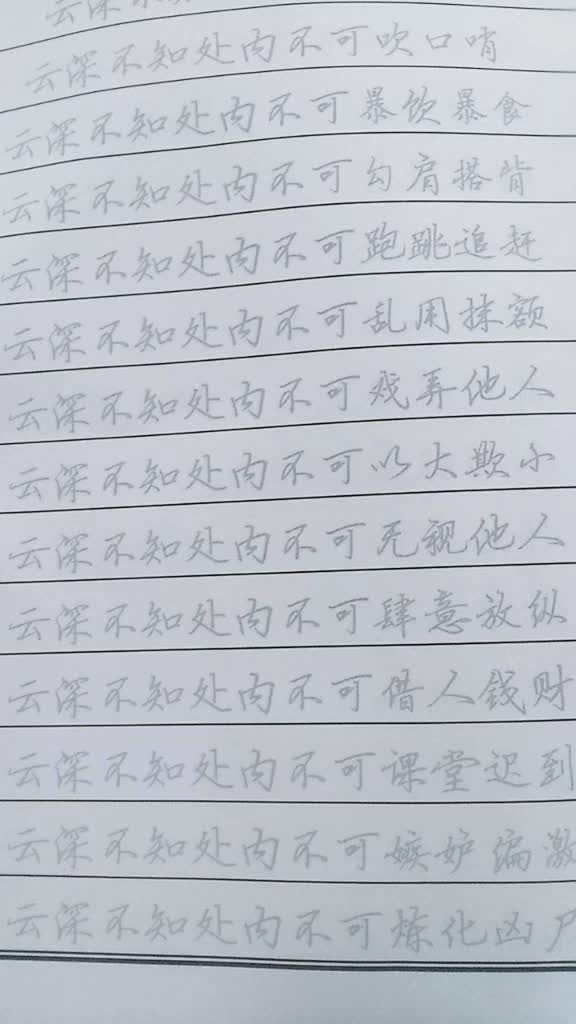 云深不知
云深不知处内不可吹口哨
云深不知处内不可暴饮暴食
云深不知处内不可勾肩搭背
云深不知处内不可跑跳追赶
云深不知处内不可乱用抹额
云深不知处内不可戏弄他人
云深不知处内不可以大欺小
云深不知处内不可无视他人
云深不知处内不可肆意放纵
云深不知处内不可借人钱财
云深不知处内不可课堂迟到
云深不知处内不可嫉妒偏激
云深不知处内不可炼化凶尸